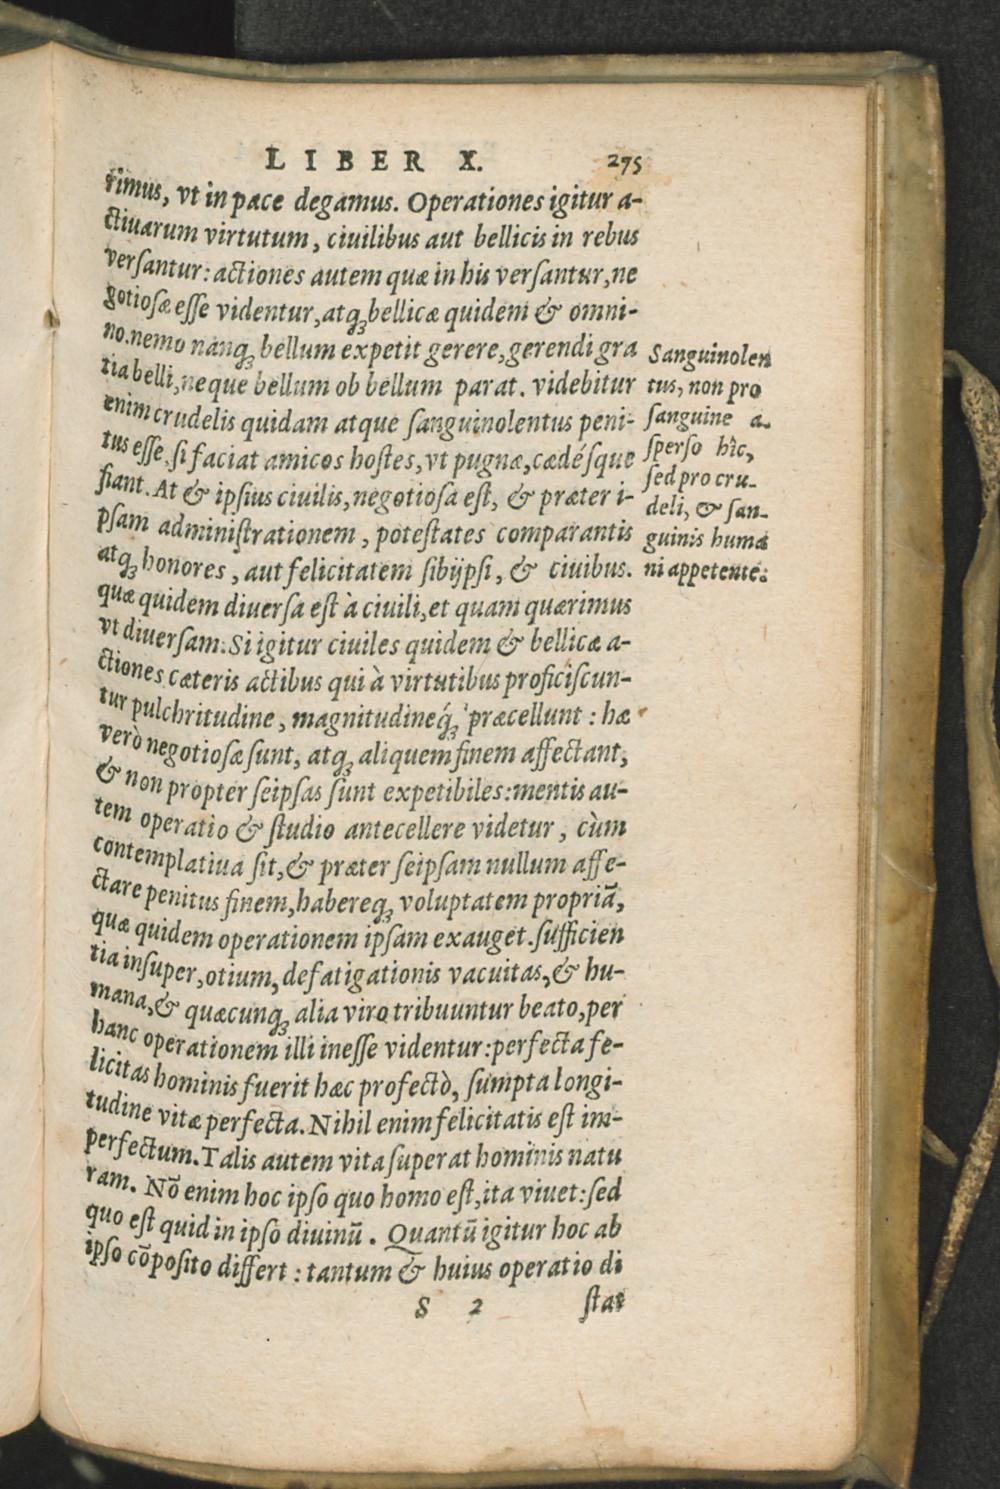 LIBER X. 275
rimus, vt in pace degamus. Operationes igitur a-
ctiuarum virtutum, ciuilibus aut bellicis in rebus
versantur: actiones autem quæ in his versantur, ne
gotiosæ esse videntur, atqꝫ bellicæ quidem & omni-
no. nemo nanqꝫ bellum expetit gerere, gerendi gra
tia belli, neque bellum ob bellum parat. videbitur
enim crudelis quidam atque sanguinolentus peni-
tus esse, si faciat amicos hostes, vt pugnæ, cædésque
fiant. At & ipsius ciuilis, negotiosa est, & præter i-
psam administrationem, potestates comparantis
atqꝫ honores, aut felicitatem sibijpsi, & ciuibus.
quæ quidem diuersa est à ciuili, et quam quærimus
vt diuersam. Si igitur ciuiles quidem & bellicæ a-
ctiones cæteris actibus qui à virtutibus proficiscun-
tur pulchritudine, magnitudineq́ꝫ præcellunt: hæ
verò negotiosæ sunt, atqꝫ aliquem finem affectant,
& non propter seipsas sunt expetibiles: mentis au-
tem operatio & studio antecellere videtur, cùm
contemplatiua sit, & præter seipsam nullum affe-
ctare penitus finem, habereqꝫ voluptatem propriā,
quæ quidem operationem ipsam exauget. sufficien
tia insuper, otium, defatigationis vacuitas, & hu-
mana, & quæcunqꝫ alia viro tribuuntur beato, per
hanc operationem illi inesse videntur: perfecta fe-
licitas hominis fuerit hæc profectò, sumpta longi-
tudine vitæ perfecta. Nihil enim felicitatis est im-
perfectum. Talis autem vita superat hominis natu
ram. Nō enim hoc ipso quo homo est, ita viuet: sed
quo est quid in ipso diuinū. Quantū igitur hoc ab
ipso cōposito differt: tantum & huius operatio di
S 2 stat
Sanguinolen
tus, non pro
sanguine a-
sperso hîc,
sed pro cru-
deli, & san-
guinis huma
ni appetente.